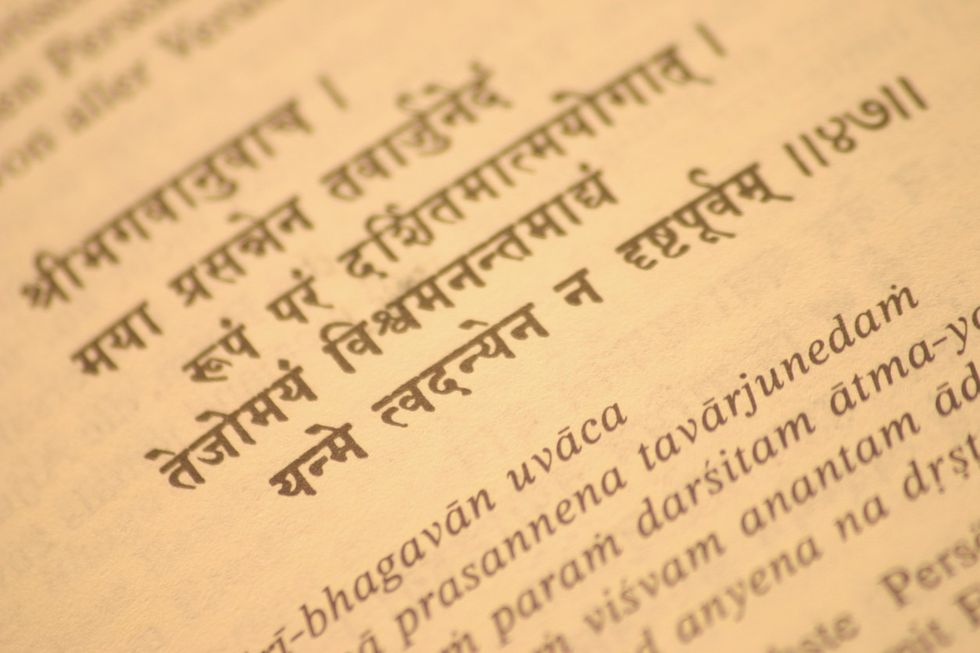 von aller
श्रीभगवानुवाच ।
मया प्रसन्नेन तवार्जुनेदं
रूपं परं दर्शितमात्मयोगात् ।
तेजोमयं विश्वमनन्तमाद्यं
यन्मे त्वदन्येन न दृष्टपूर्वम् ॥४७॥
rī-bhagavān uvāca
ā prasannena tavārjunedaṁ
ṁ paraṁ darśitam ātma-yo
ṁ viśvam anantam ād
d anyena na dṛṣṭ
Pers
mit